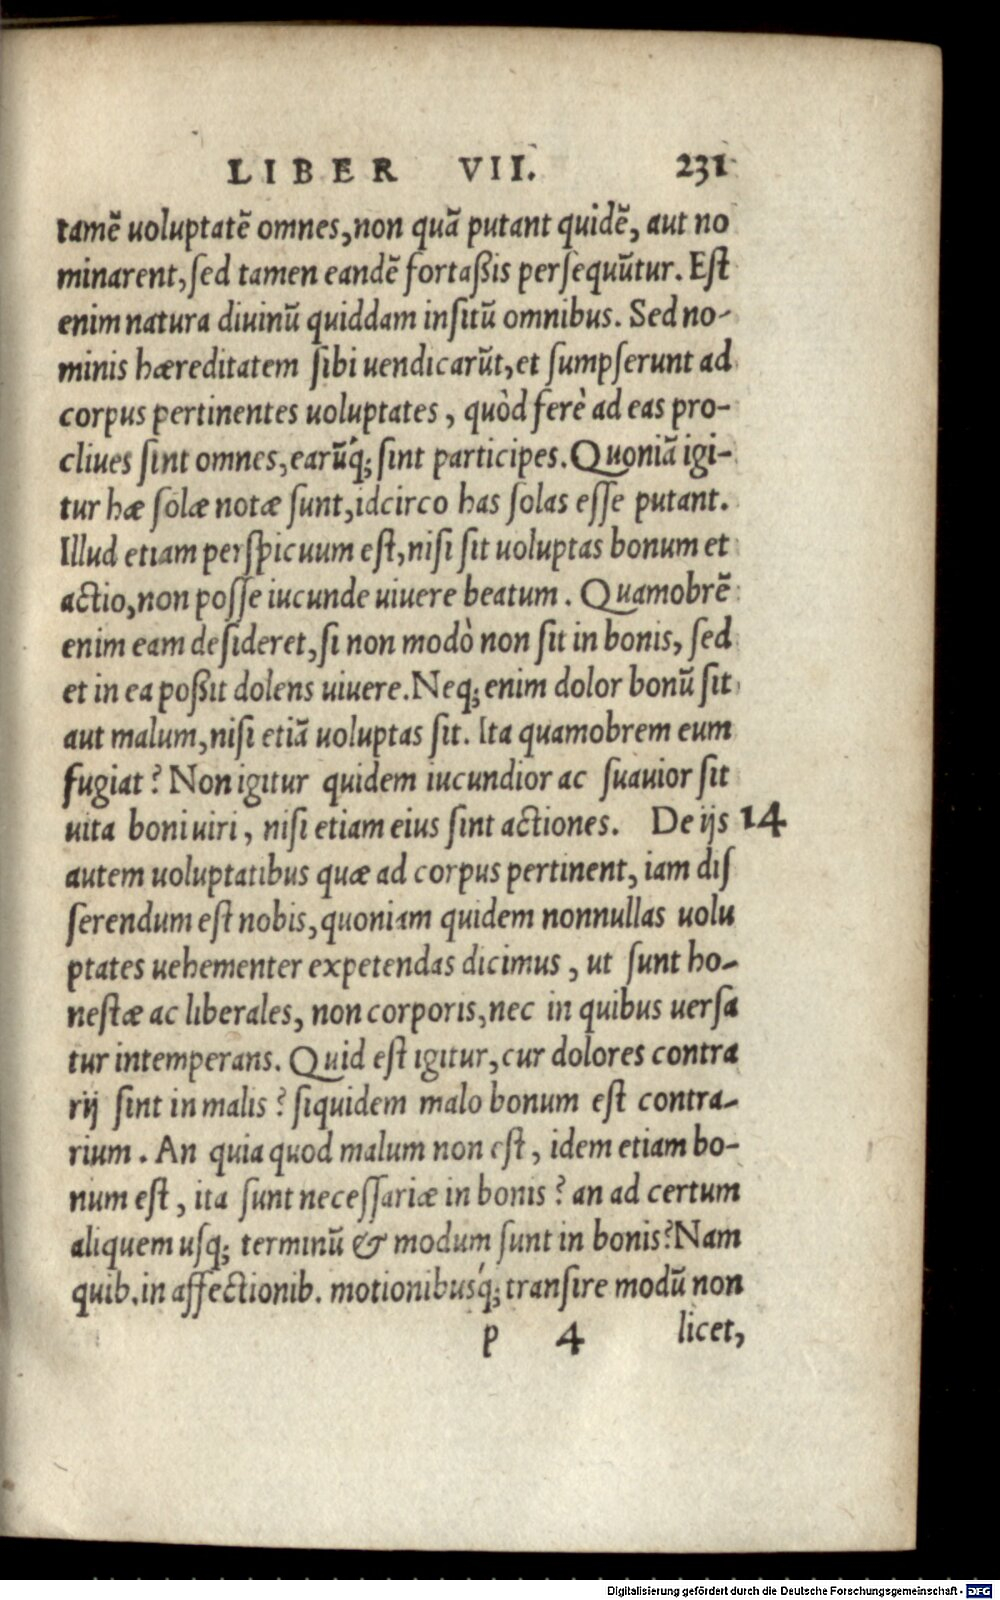 LIBER VII. 231
tamē uoluptatē omnes, non quā putant quidē, aut no
minarent, ſed tamen eandē fortaßis perſequūtur. Eſt
enim natura diuinū quiddam inſitū omnibus. Sed no-
minis hæreditatem ſibi uendicarūt, et ſumpſerunt ad
corpus pertinentes uoluptates, quòd ferè ad eas pro-
cliues ſint omnes, earūq́; ſint participes. Quoniā igi-
tur hæ ſolæ notæ ſunt, idcirco has ſolas eſſe putant.
Illud etiam perſpicuum eſt, niſi ſit uoluptas bonum et
actio, non poſſe iucunde uiuere beatum. Quamobrē
enim eam deſideret, ſi non modò non ſit in bonis, ſed
et in ea poßit dolens uiuere. Neq; enim dolor bonū ſit
aut malum, niſi etiā uoluptas ſit. Ita quamobrem eum
fugiat? Non igitur quidem iucundior ac ſuauior ſit
uita boni uiri, niſi etiam eius ſint actiones. De ijs 14
autem uoluptatibus quæ ad corpus pertinent, iam diſ
ſerendum eſt nobis, quoniam quidem nonnullas uolu
ptates uehementer expetendas dicimus, ut ſunt ho-
neſtæ ac liberales, non corporis, nec in quibus uerſa
tur intemperans. Quid eſt igitur, cur dolores contra
rij ſint in malis? ſiquidem malo bonum eſt contra-
rium. An quia quod malum non eſt, idem etiam bo-
num eſt, ita ſunt neceſſariæ in bonis? an ad certum
aliquem uſq; terminū & modum ſunt in bonis? Nam
quib. in affectionib. motionibusq́; tranſire modū non
p 4 licet,
Digitalisierung gefördert durch die Deutsche Forschungsgemeinschaft - DFG